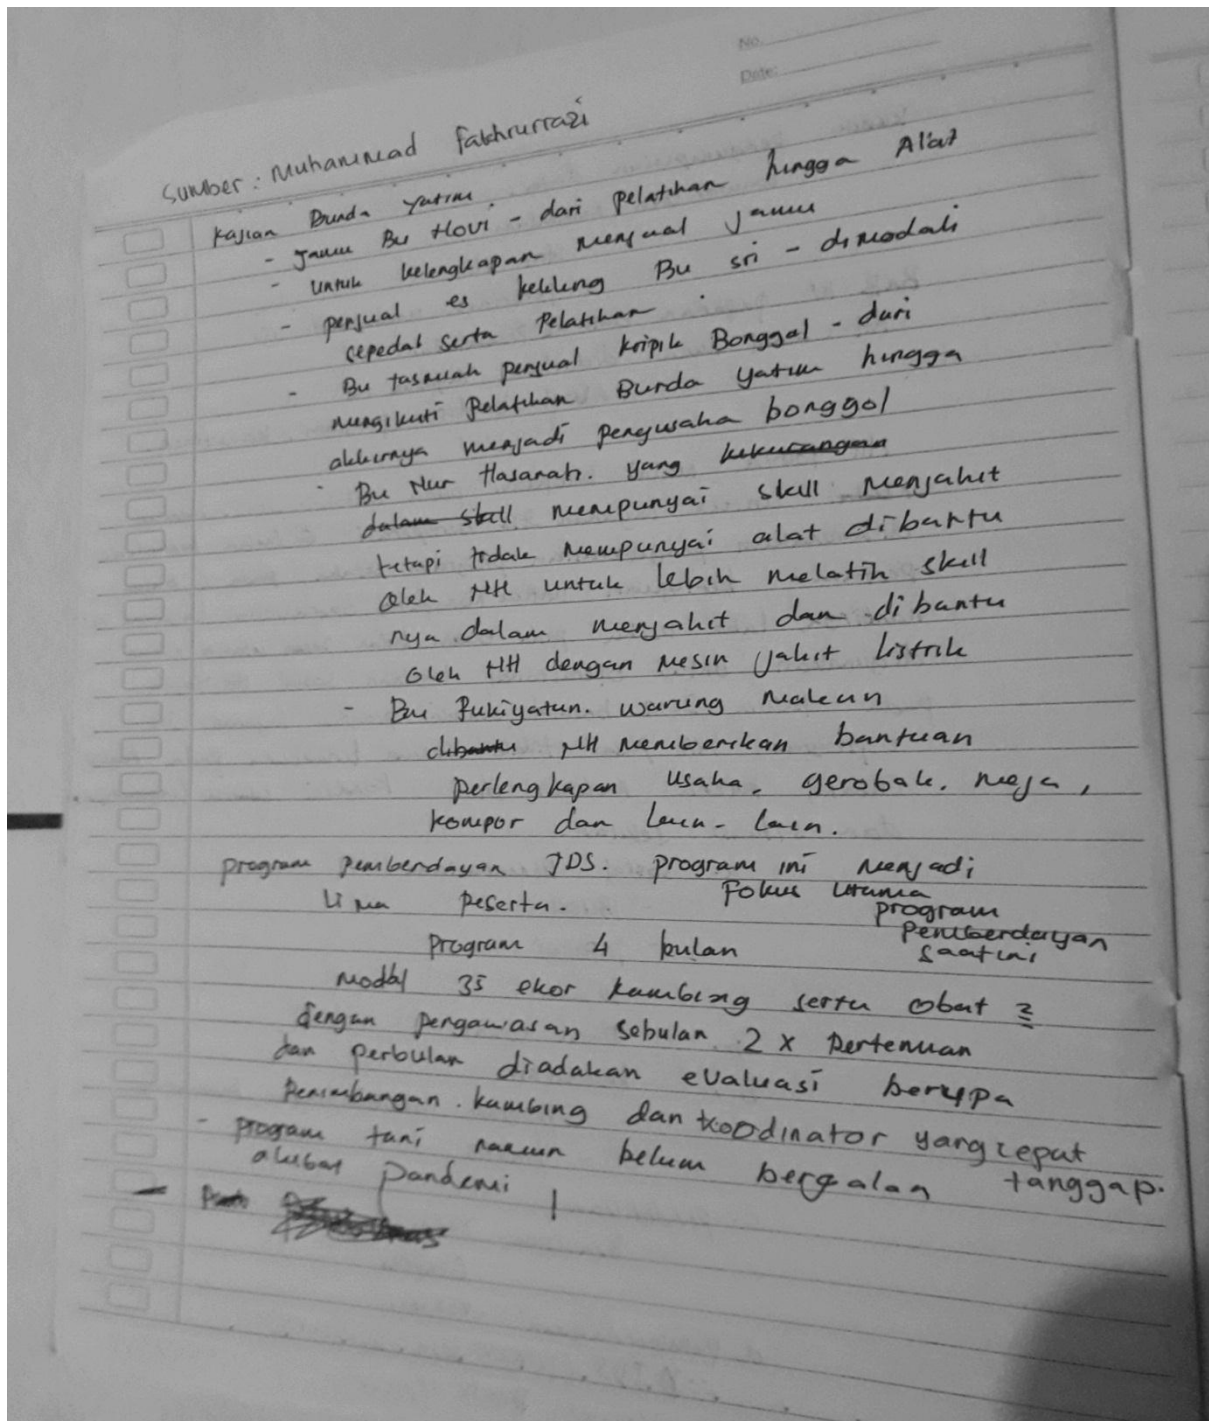 No.
Date:
Sumber : Muhammad Fakhrurrazi
Kajian Bunda Yatim.
- Jamu Bu Hovi - dari Pelatihan hingga Alat
- untuk kelengkapan menjual Jamu
- penjual es keliling Bu Sri - dimodali
sepedah serta Pelatihan.
- Bu Tasmiah penjual kripik Bonggol - dari
mengikuti Pelatihan Bunda Yatim hingga
akhirnya menjadi pengusaha bonggol
- Bu Nur Hasanah. yang kekurangan
dalam skill mempunyai skill Menjahit
tetapi tidak mempunyai alat dibantu
Oleh NH untuk lebih melatih skill
nya dalam menjahit dan dibantu
Oleh NH dengan mesin jahit listrik
- Bu Fukiyatun. warung makan
dibantu NH memberikan bantuan
perlengkapan usaha, gerobak, meja,
kompor dan lain-lain.
program pemberdayan JDS. program ini menjadi
Fokus Utama
lima peserta. program
Pemberdayan
Program 4 bulan saat ini
modal 35 ekor kambing serta obat 2
dengan pengawasan sebulan 2 x pertemuan
dan perbulan diadakan evaluasi berupa
Penimbangan. kambing dan koodinator yang cepat
- program tani namun belum berjalan tanggap.
akibat Pandemi